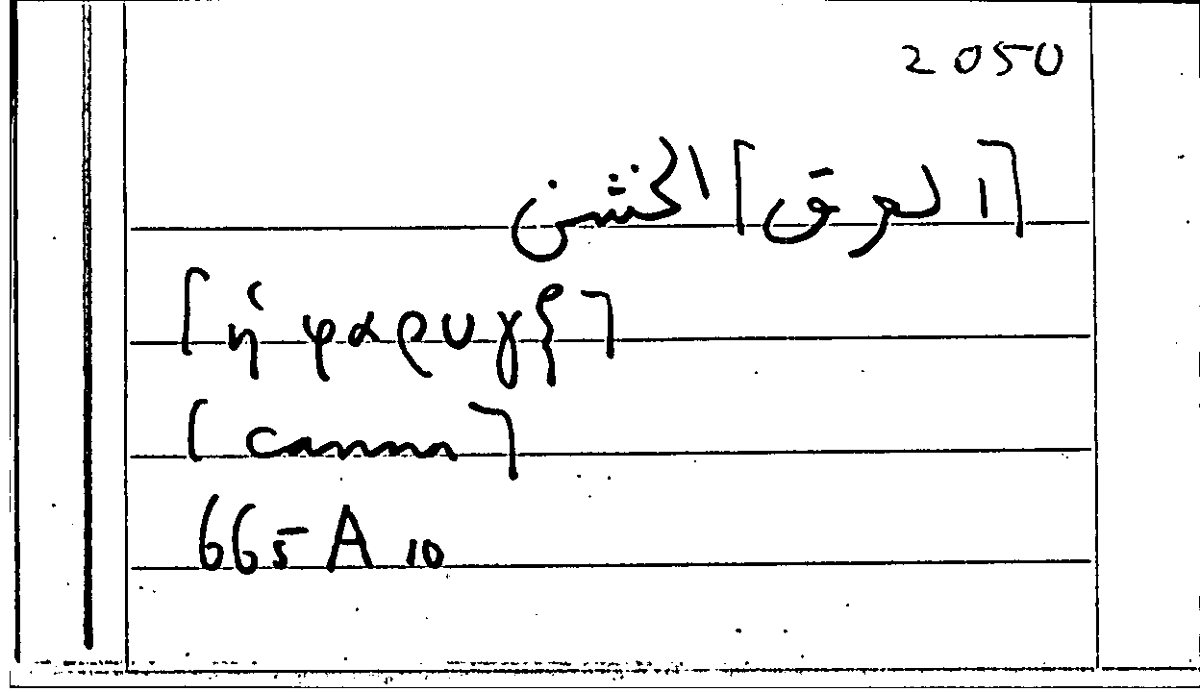 2050
[العرق] الخشن
[ἡ φαρυγξ]
[canna]
665 A 10